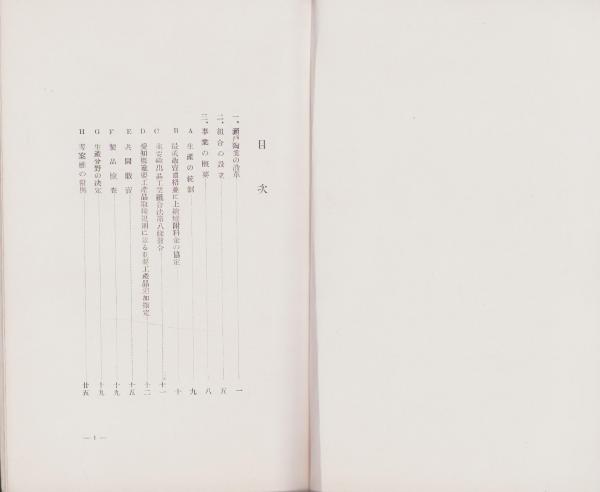 目次
一、瀬戸陶業の沿革 一
二、組合の設立 五
三、事業の概要 八
A 生産の統制 九
B 最低販賣價格並に上繪焼附料金の協定 十
C 重要輸出品工業組合法第八條發令 十一
D 愛知縣重要工產品取締規則に依る重要工產品追加指定 十二
E 共同販賣 十五
F 製品檢査 十九
G 生產分野の決定 十九
H 考案維の 廿五
— 1 —